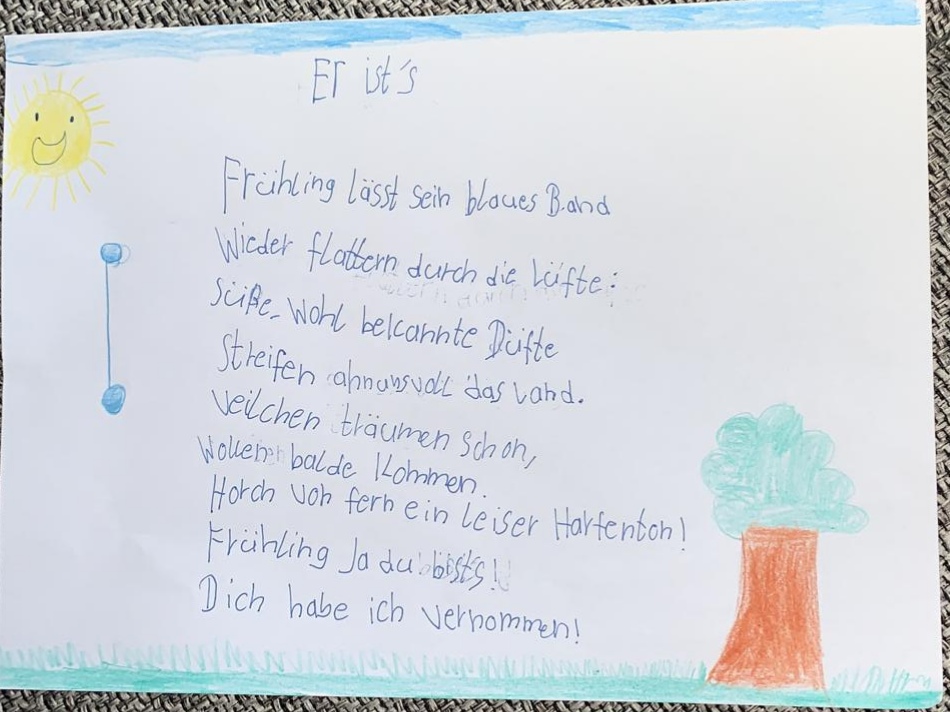 Er ist's
Frühling lässt sein blaues Band
Wieder flattern durch die Lüfte:
Süße, wohl bekannte Düfte
Streifen ahnunsvoll das Land.
Veilchen träumen schon,
Wollen balde kommen.
Horch von fern ein leiser Harfenton!
Frühling Ja du bist's!
Dich habe ich vernommen!